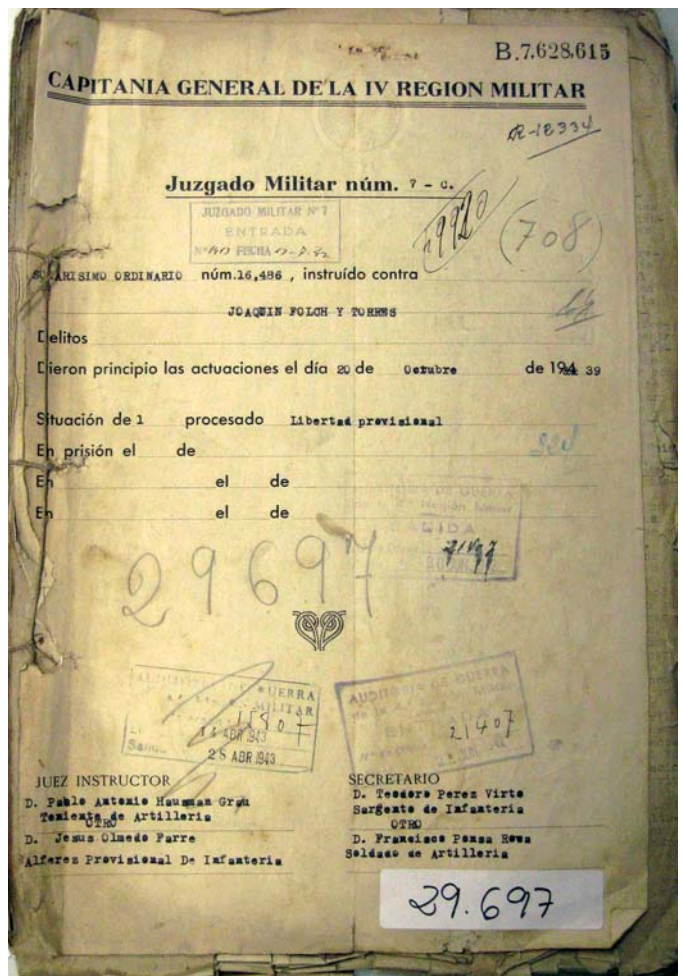 B.7.628.615
CAPITANIA GENERAL DE LA IV REGION MILITAR
R-18334
Juzgado Militar núm. 7 - C.
JUZGADO MILITAR Nº 7
ENTRADA
FECHA
(708)
SUMARISIMO ORDINARIO núm. 16,486 , instruído contra
JOAQUIN FOLCH Y TORRES
Delitos
Dieron principio las actuaciones el día 20 de Octubre de 194 39
Situación de l procesado Libertad provisional
En prisión el de
En el de
En el de
DE GUERRA
SALIDA
29697
AUDITORIA DE GUERRA
MILITAR
14 ABR 1943
28 ABR 1943
AUDITORIA DE GUERRA
21407
JUEZ INSTRUCTOR
D. Pablo Antonio Hausman Grau
Teniente de Artilleria
OTRO
D. Jesus Olmedo Farre
Alferez Provisional De Infanteria
SECRETARIO
D. Teodoro Perez Virto
Sargento de Infanteria
OTRO
D. Francisco Ponsa
Soldado de Artilleria
29.697